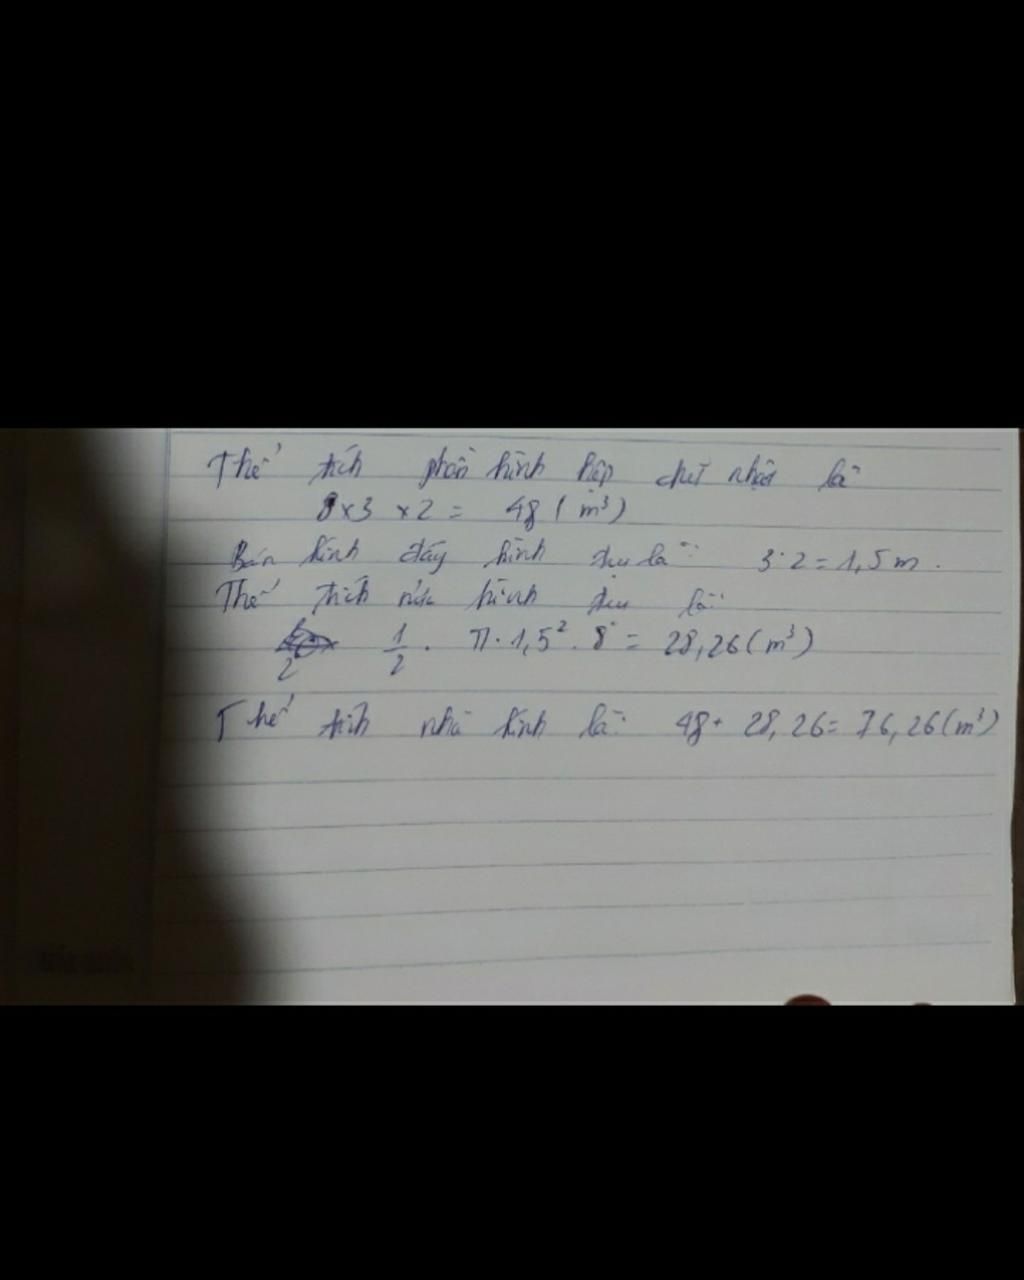 Thể tích phần hình hộp chữ nhật là
8 x 3 x 2 = 48 ( m³)
Bán kính đáy hình trụ là: 3:2 = 1,5 m.
Thể tích nửa hình trụ là:
1/2 . π . 1,5² . 8 = 28,26 (m³)
Thể tích nhà kính là: 48 + 28,26 = 76,26 (m³)